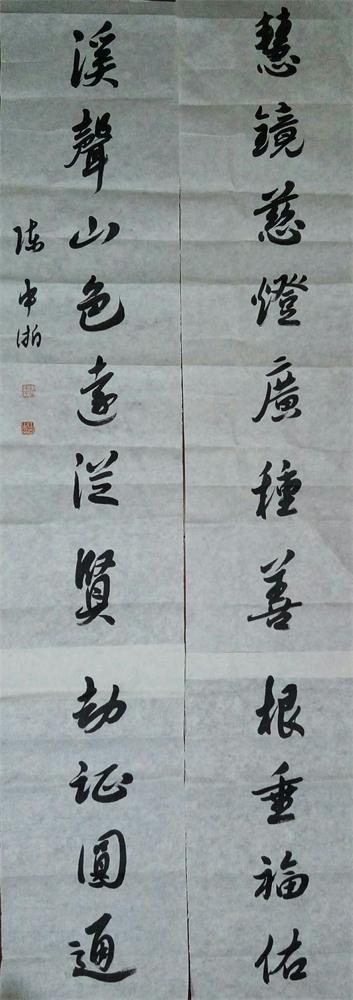 慧鏡慈燈廣種善根垂福佑
溪聲山色遠從賢劫証圓通
陳中湘